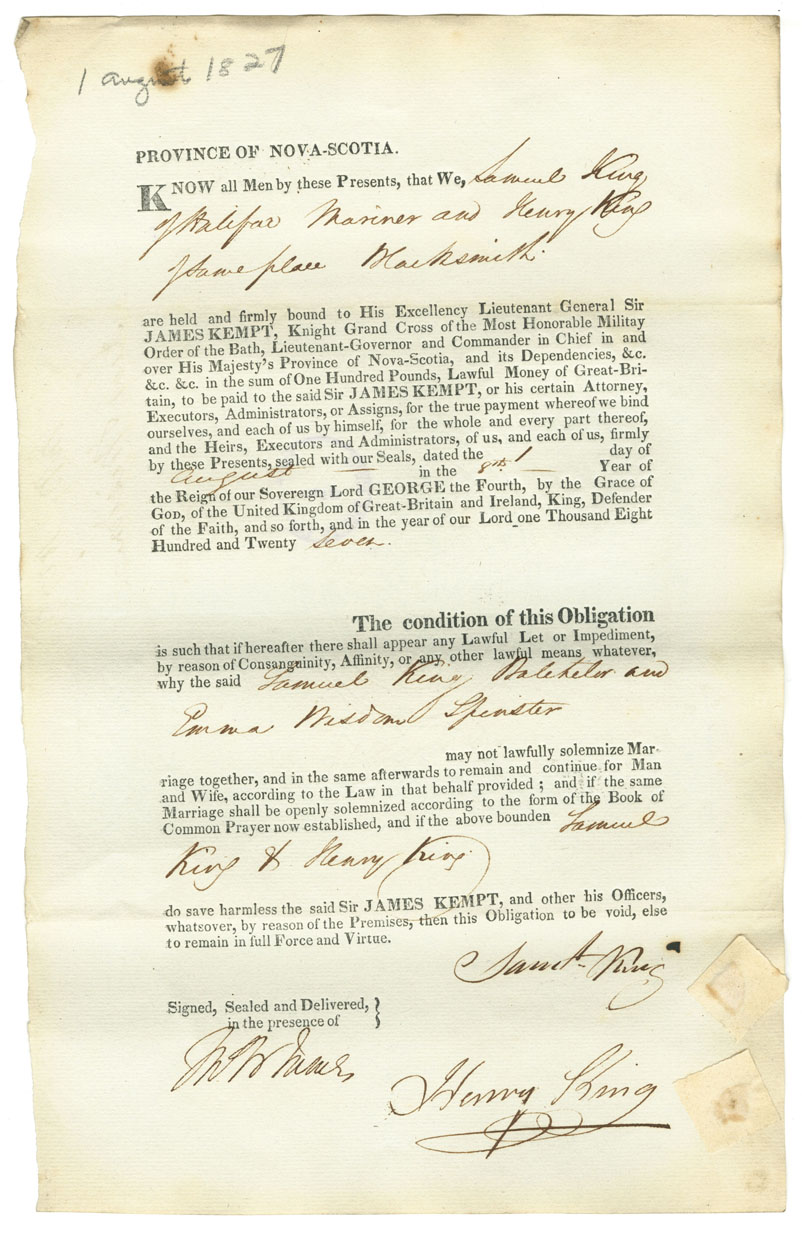 1 august 1827
PROVINCE OF NOVA-SCOTIA.
KNOW all Men by these Presents, that We, Samuel King
of Halifax Mariner and Henry King
of same place Blacksmith.
are held and firmly bound to His Excellency Lieutenant General Sir
JAMES KEMPT, Knight Grand Cross of the Most Honorable Militay
Order of the Bath, Lieutenant-Governor and Commander in Chief in and
over His Majesty's Province of Nova-Scotia, and its Dependencies, &c.
&c. &c. in the sum of One Hundred Pounds, Lawful Money of Great-Bri-
tain, to be paid to the said Sir JAMES KEMPT, or his certain Attorney,
Executors, Administrators, or Assigns, for the true payment whereof we bind
ourselves, and each of us by himself, for the whole and every part thereof,
and the Heirs, Executors and Administrators, of us, and each of us, firmly
by these Presents, sealed with our Seals, dated the 1 day of
August in the 8th Year of
the Reign of our Sovereign Lord GEORGE the Fourth, by the Grace of
GOD, of the United Kingdom of Great-Britain and Ireland, King, Defender
of the Faith, and so forth, and in the year of our Lord one Thousand Eight
Hundred and Twenty Seven.
The condition of this Obligation
is such that if hereafter there shall appear any Lawful Let or Impediment,
by reason of Consanguinity, Affinity, or any other lawful means whatever,
why the said Samuel King Batchelor and
Emma Wisdom Spinster
may not lawfully solemnize Mar-
riage together, and in the same afterwards to remain and continue for Man
and Wife, according to the Law in that behalf provided; and if the same
Marriage shall be openly solemnized according to the form of the Book of
Common Prayer now established, and if the above bounden Samuel
King & Henry King
do save harmless the said Sir JAMES KEMPT, and other his Officers,
whatsover, by reason of the Premises, then this Obligation to be void, else
to remain in full Force and Virtue.
Saml. King
Signed, Sealed and Delivered,
in the presence of
Henry King